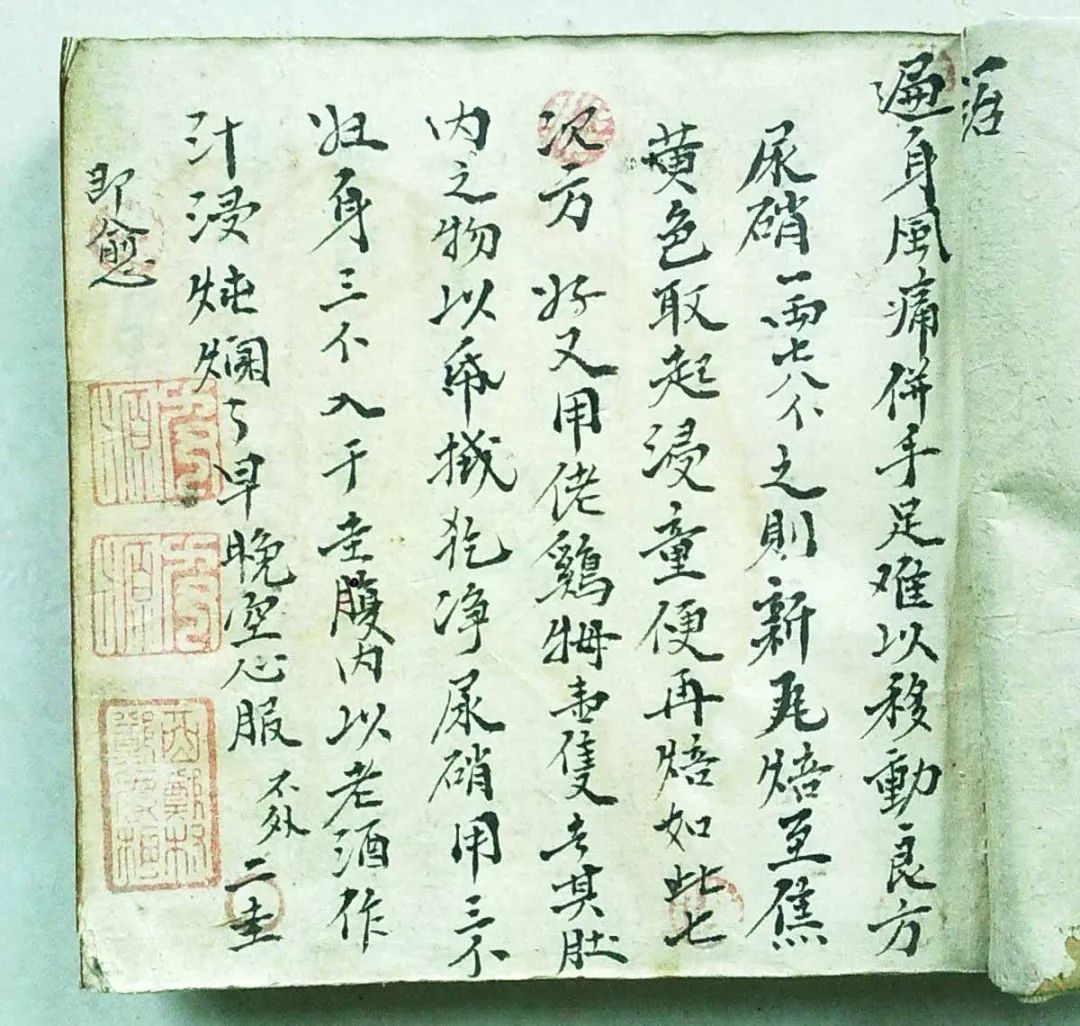 一治
遍身風痛併手足难以移動良方
尿硝一两七八个之則新瓦焙至焦
黄色取起浸童便再焙如此七
次方好又用佬鷄牳壹隻去其肚
内之物以布搣乾净尿硝用三个
妇身三个入于圭腹内以老酒作
汁浸炖爛了早晚空心服不外二圭
即愈
西鄭村